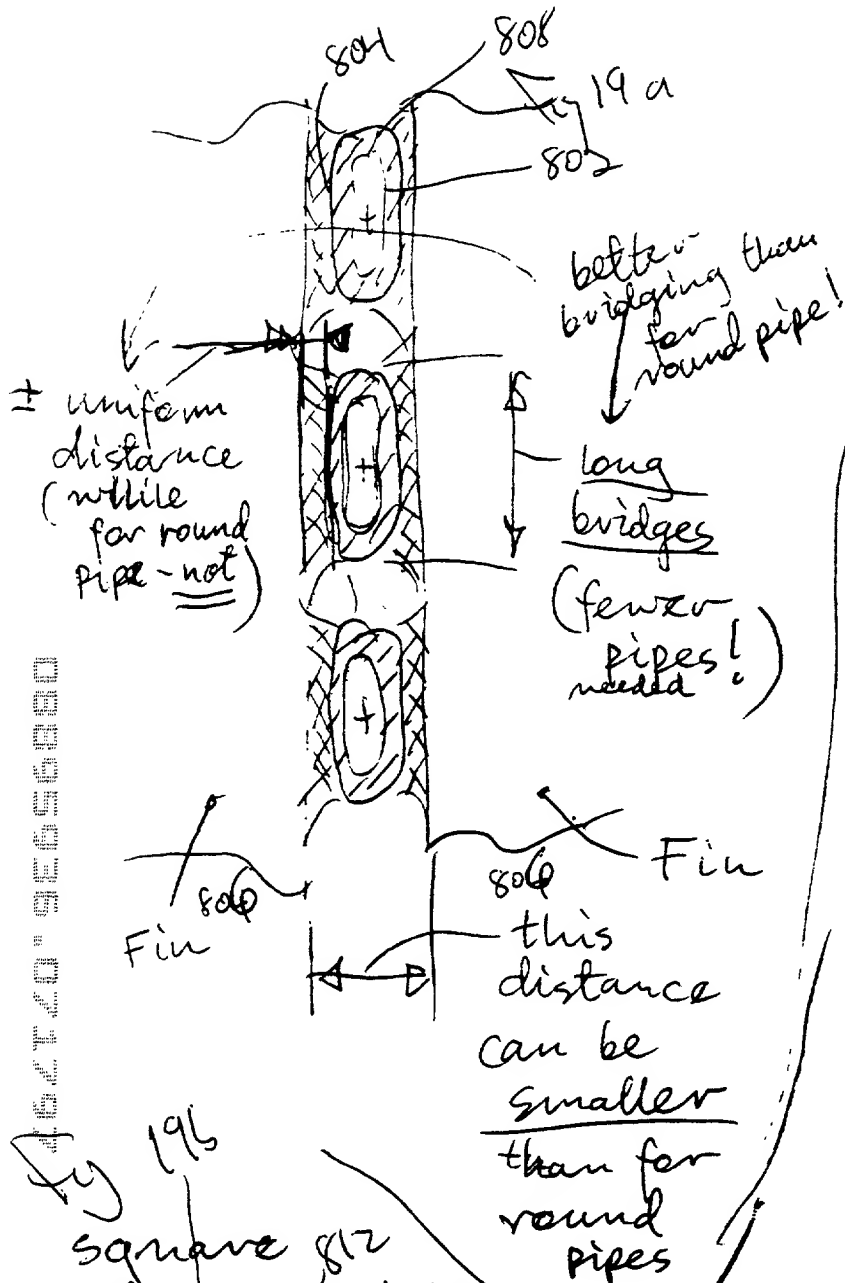 804
808
Fig 19 a
802
better
bridging than
for
round pipe!
± uniform
distance
(while
for round
pipe - not)
long
bridges
(fewer
pipes!
needed
Fin
806
806
Fin
this
distance
can be
smaller
than for
round
pipes
Fig 19b
square
812